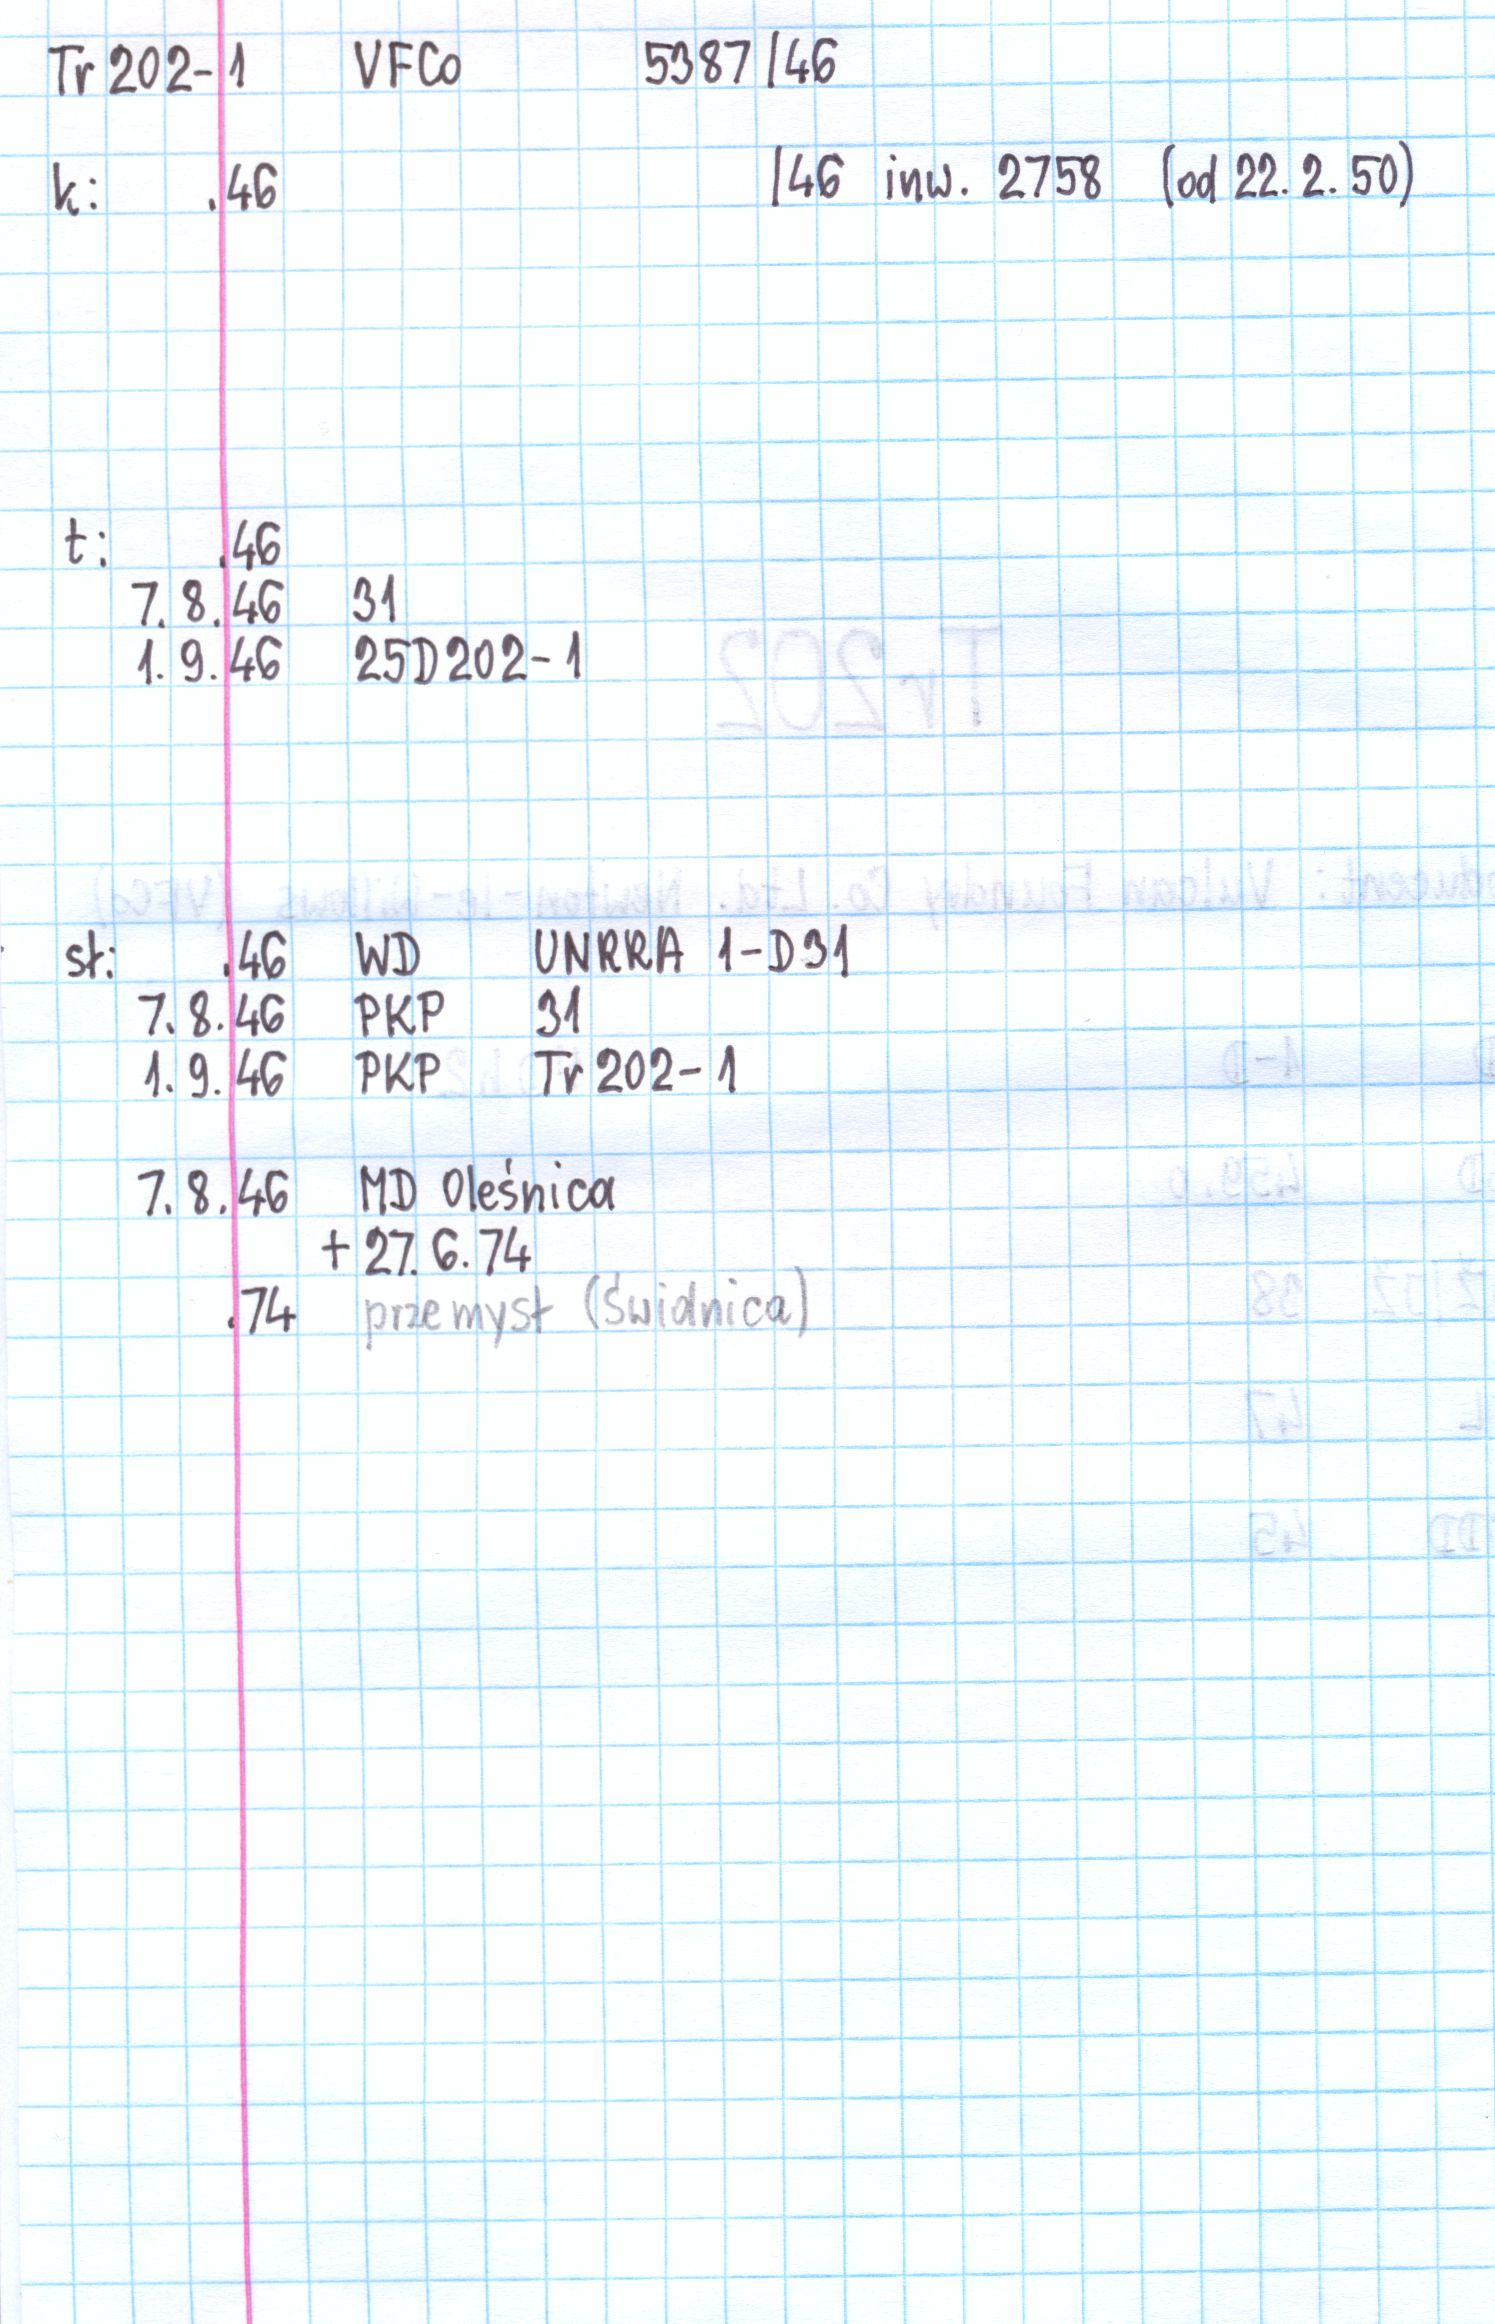 Tr 202-1 VFCo 5387 /46
k: .46 /46 inw. 2758 (od 22. 2. 50)
t: .46
7. 8. 46 31
1. 9. 46 25D202-1
st: .46 WD UNRRA 1-D31
7. 8. 46 PKP 31
1. 9. 46 PKP Tr 202-1
7. 8. 46 MD Oleśnica
+ 27. 6. 74
.74 przemysł (Świdnica)